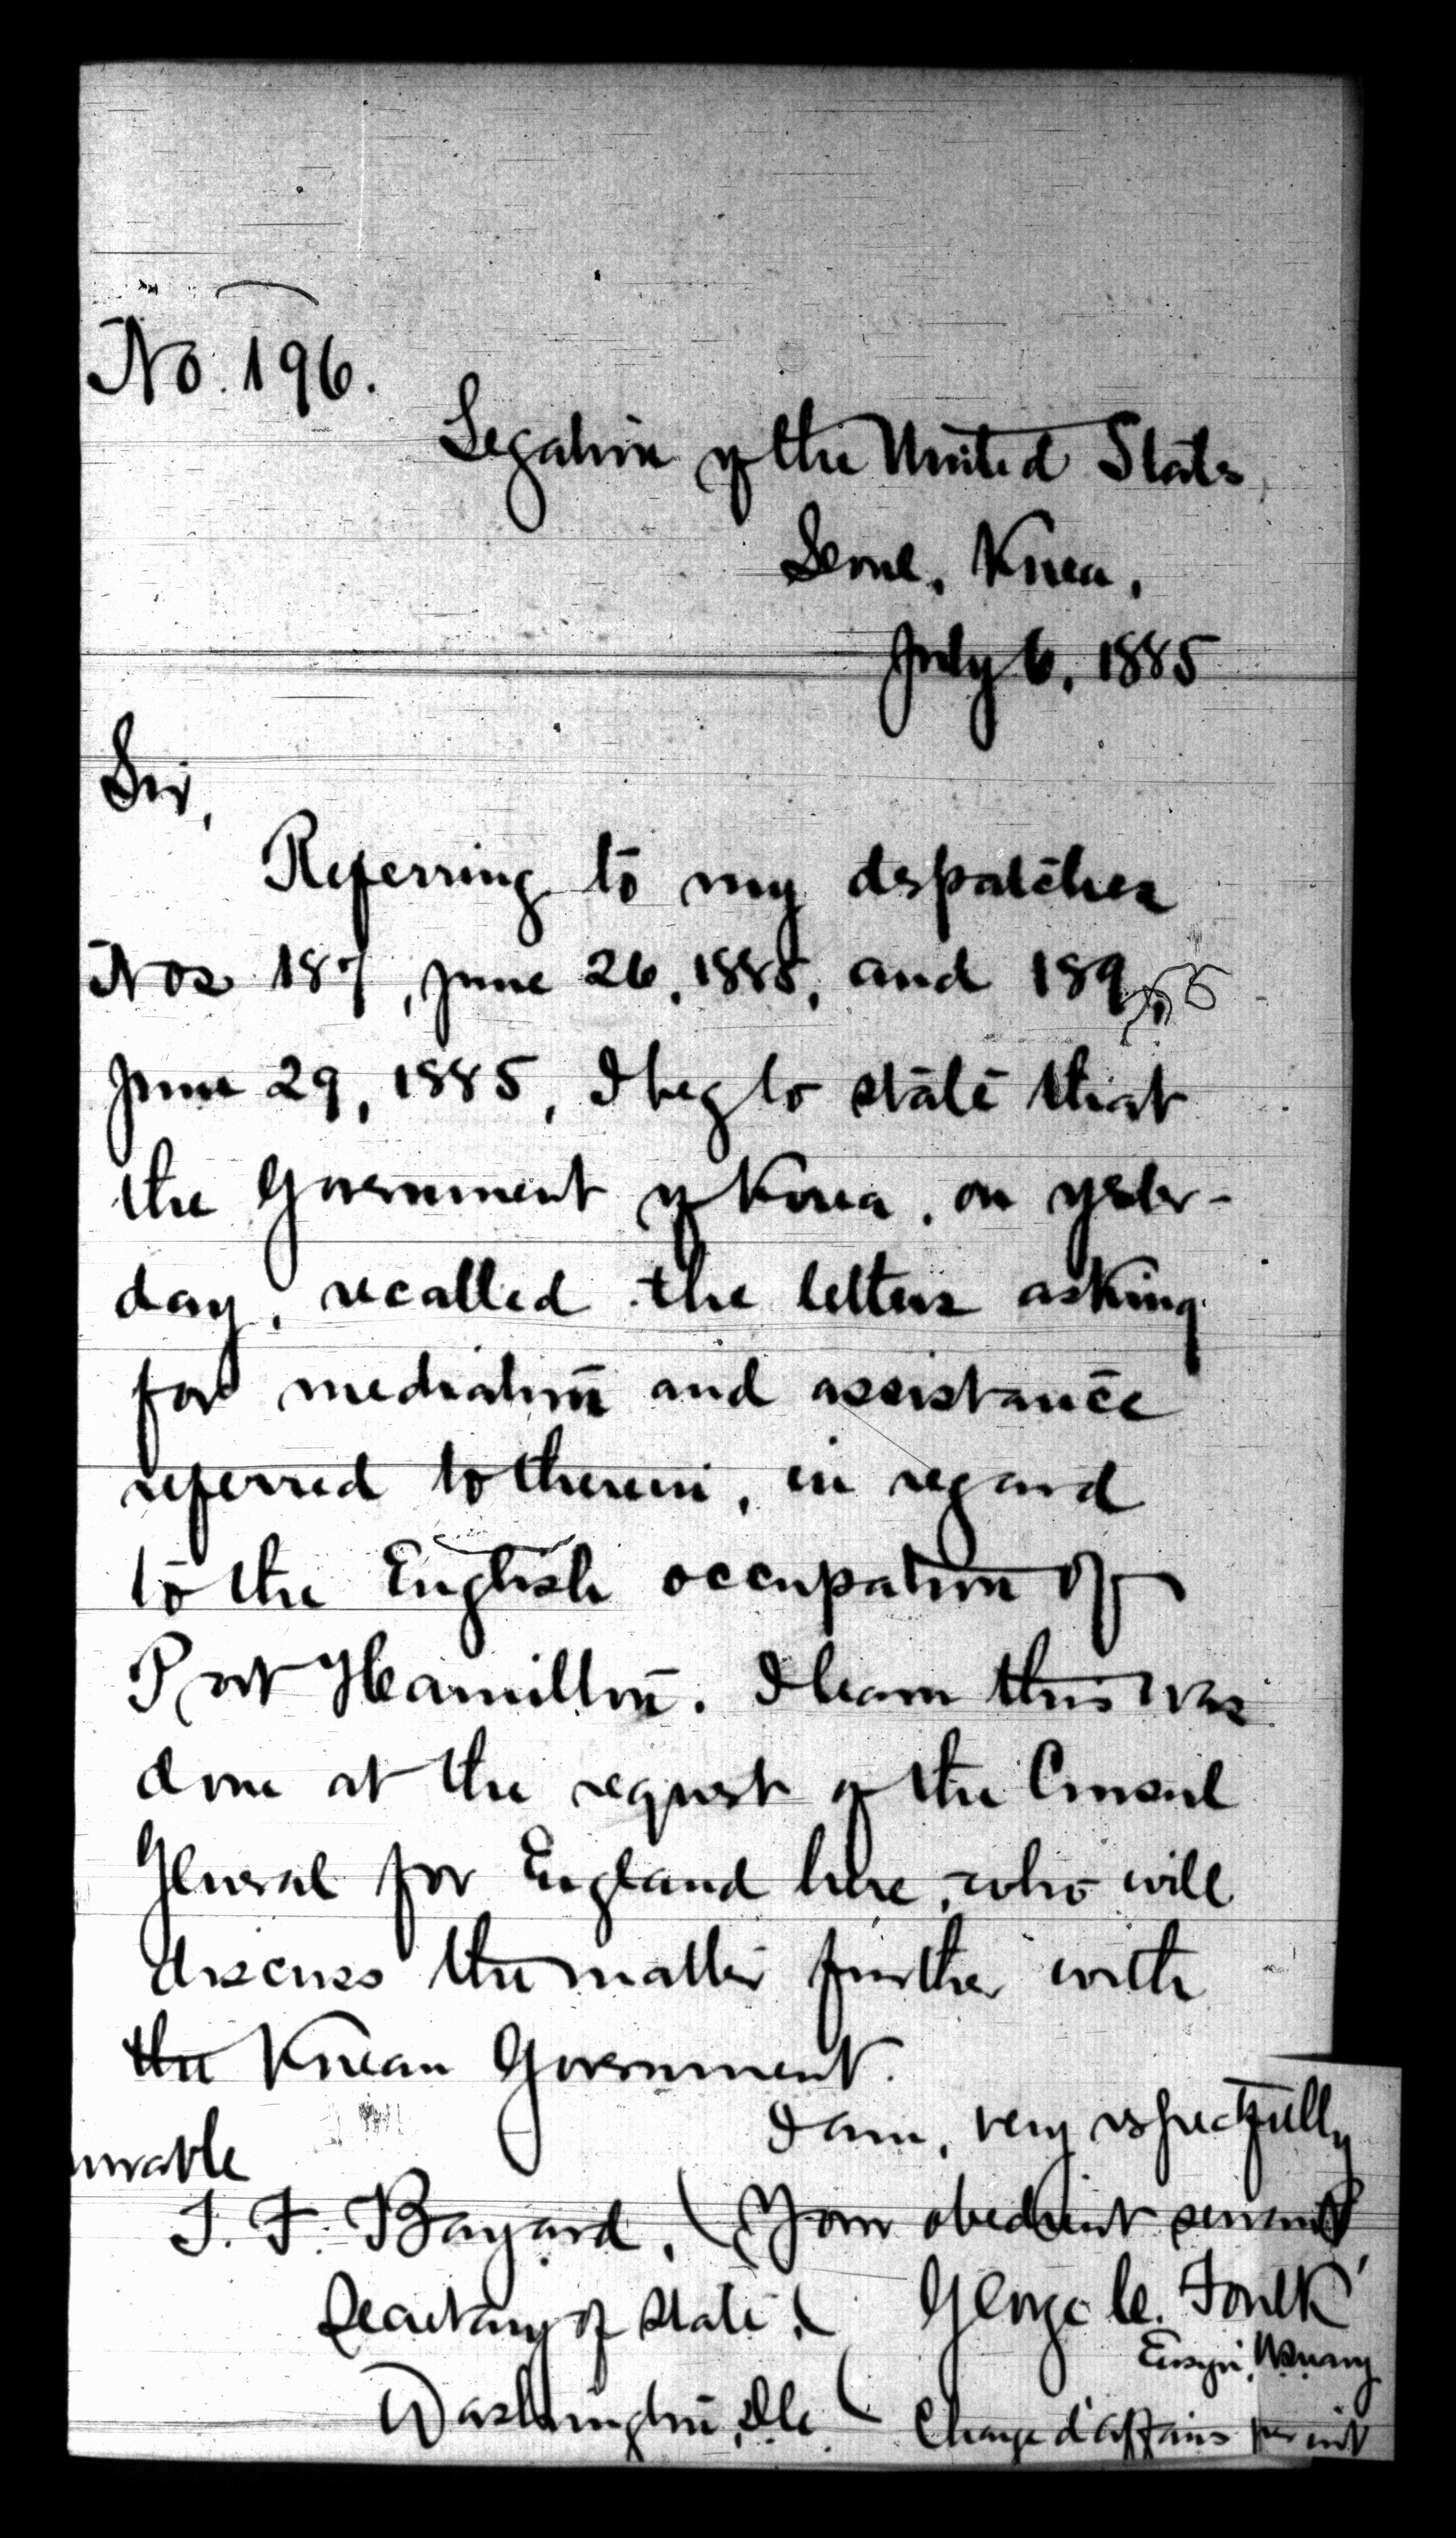 No. 196.
Legation of the United States
Seoul, Korea,
July 6, 1885
Sir,
Referring to my dispatches
Nos 187, June 26, 1885, and 189,
June 29, 1885, I beg to state that
the Government of Korea, on yester-
day, recalled the letters asking
for mediation and assistance
referred to therein, in regard
to the English occupation of
Port Hamilton. I learn this was
done at the request of the Consul
General for England here, who will
discuss the matter further with
the Korean Government.
I am, very respectfully
norable
T. F. Bayard, Your obedient servant
Secretary of State, George C. Foulk
Ensign,
Washington, D.C. Charge d'affairs